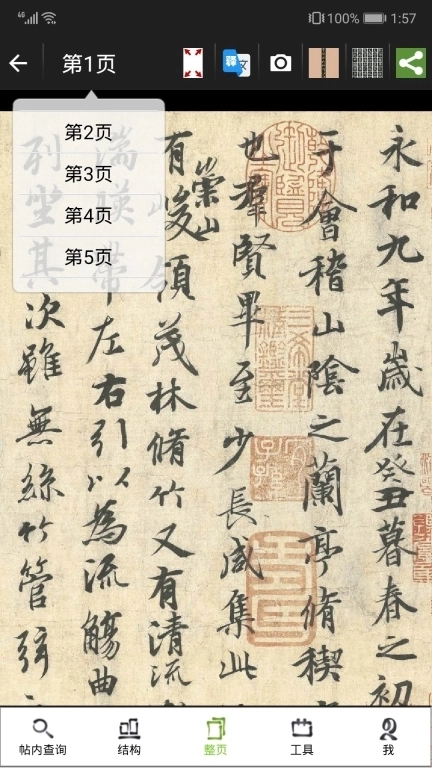 4G 100% 1:57
第1页
释文
第2页
第3页
第4页
第5页
永和九年歲在癸丑暮春之初
于會稽山陰之蘭亭脩稧
也羣賢畢至少長咸集此
有崇山峻領茂林脩竹又有清流
湍暎帶左右引以為流觴曲
列坐其次雖無絲竹管弦
帖内查询
结构
整页
工具
我